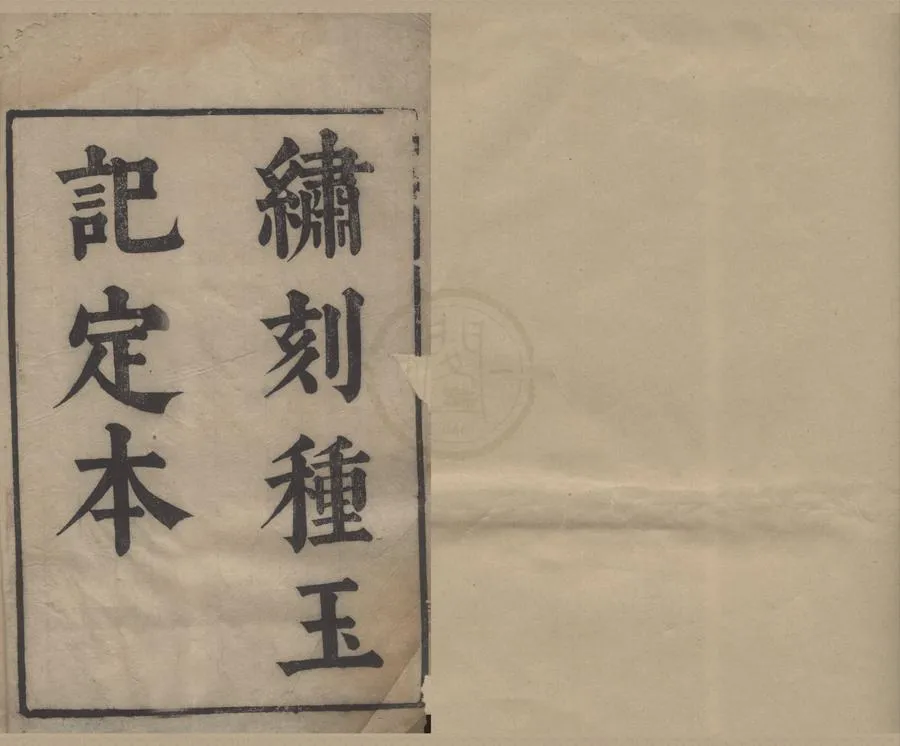 繡刻種玉
記定本